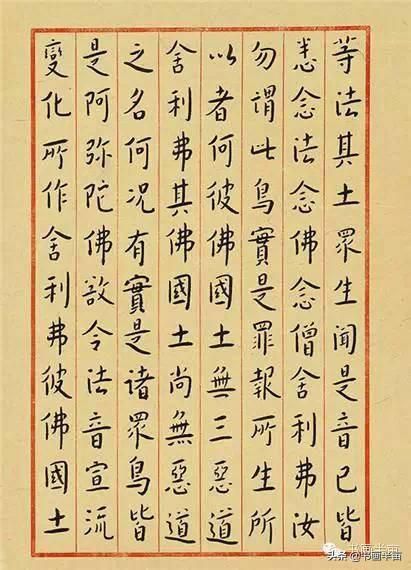 等法其土眾生聞是音已皆
悉念法念佛念僧舍利弗汝
勿謂此鳥實是罪報所生所
以者何彼佛國土無三惡道
舍利弗其佛國土尚無惡道
之名何況有實是諸眾鳥皆
是阿弥陀佛欲令法音宣流
變化所作舍利弗彼佛國土
书画半亩
头条@书画半亩